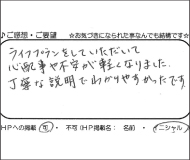 ♪ご感想・ご要望 ☆お気づきになられた事なんでも結構です☆
ライフプランをしていただいて
心配事や不安が軽くなりました。
丁寧な説明でわかりやすかったです。
HPへの掲載 可 ・ 不可（HP掲載名： 名前） ・ イニシャル